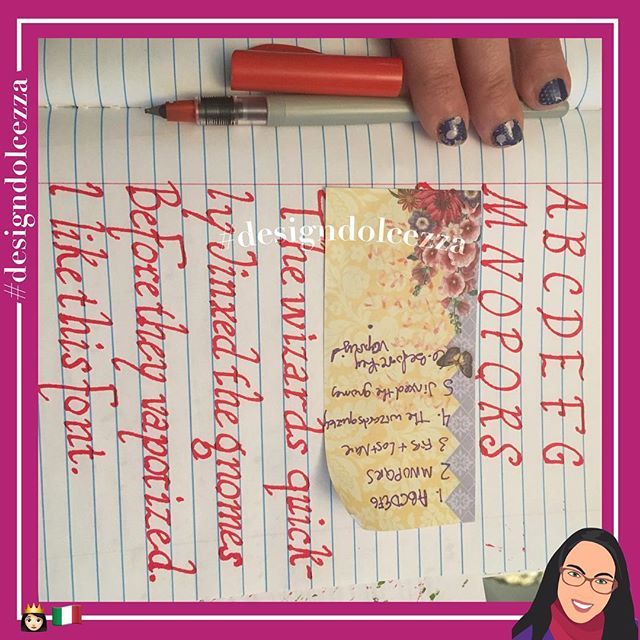 #designdolcezza
#designdolcezza
A B C D E F G
M N O P Q R S
The wizards quick-
ly Jinxed the gnomes
Before they vaporized.
I like this font.
1. ABCDEFG
2 MNOPQRS
3 First + Last Name
4. The wizards quickly
5 Jinxed the gnomes
6. Before they